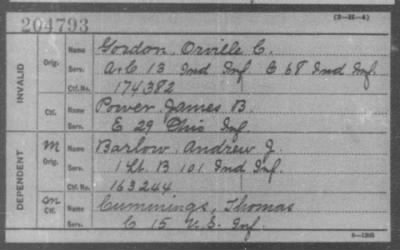 204793
(3-21-4)
INVALID
Orig. Name Gordon, Orville C.
Serv. A & C 13 Ind Inf E 68 Ind Inf.
Ctf. No. 174382
Ctf. Name Power, James B.
Serv. E 29 Ohio Inf
DEPENDENT
M Orig. Name Barlow, Andrew J.
Serv. 1 Lt. B 101 Ind Inf.
Ctf. No. 163244
M Ctf. Name Cummings, Thomas
Serv. C 15 U.S. Inf.